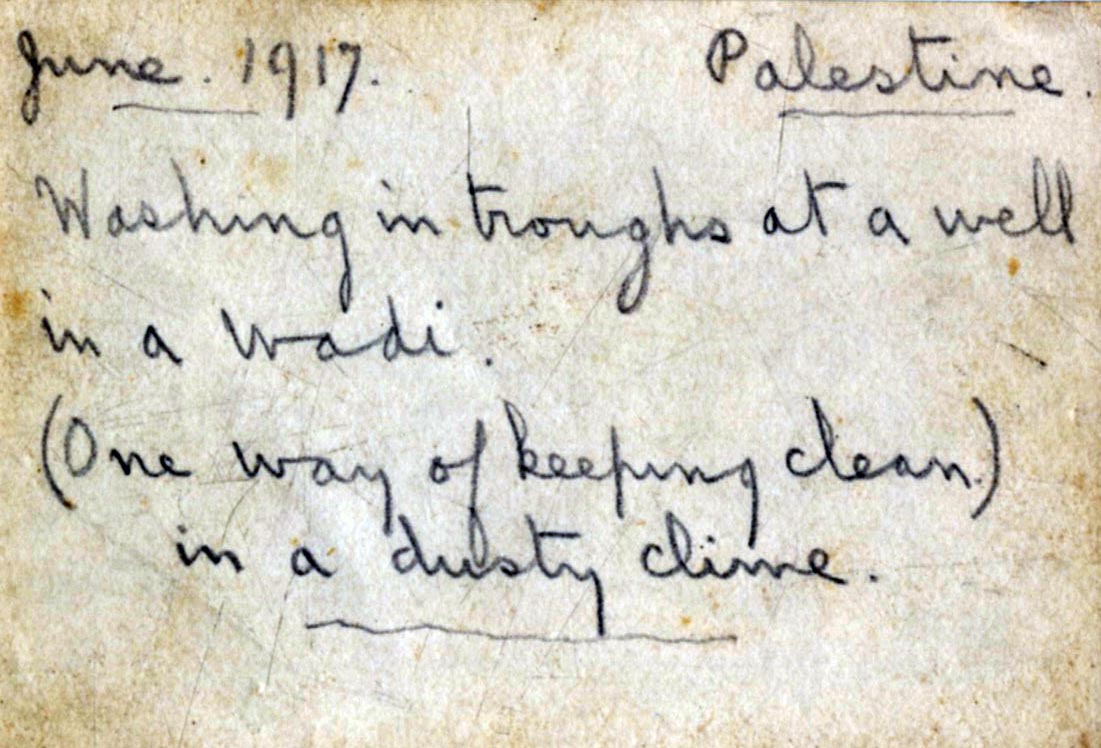 June. 1917. Palestine.
Washing in troughs at a well
in a wadi.
(One way of keeping clean.)
in a dusty clime.